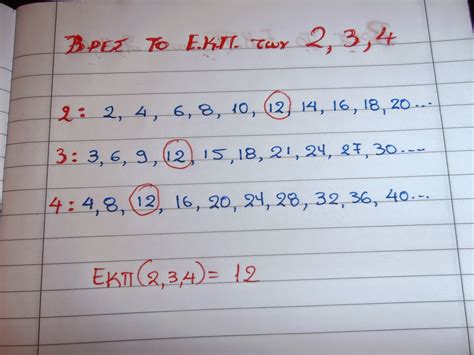 Βρες το Ε.Κ.Π. των 2, 3, 4
2: 2, 4, 6, 8, 10, 12, 14, 16, 18, 20...
3: 3, 6, 9, 12, 15, 18, 21, 24, 27, 30...
4: 4, 8, 12, 16, 20, 24, 28, 32, 36, 40...
ΕΚΠ(2,3,4)= 12